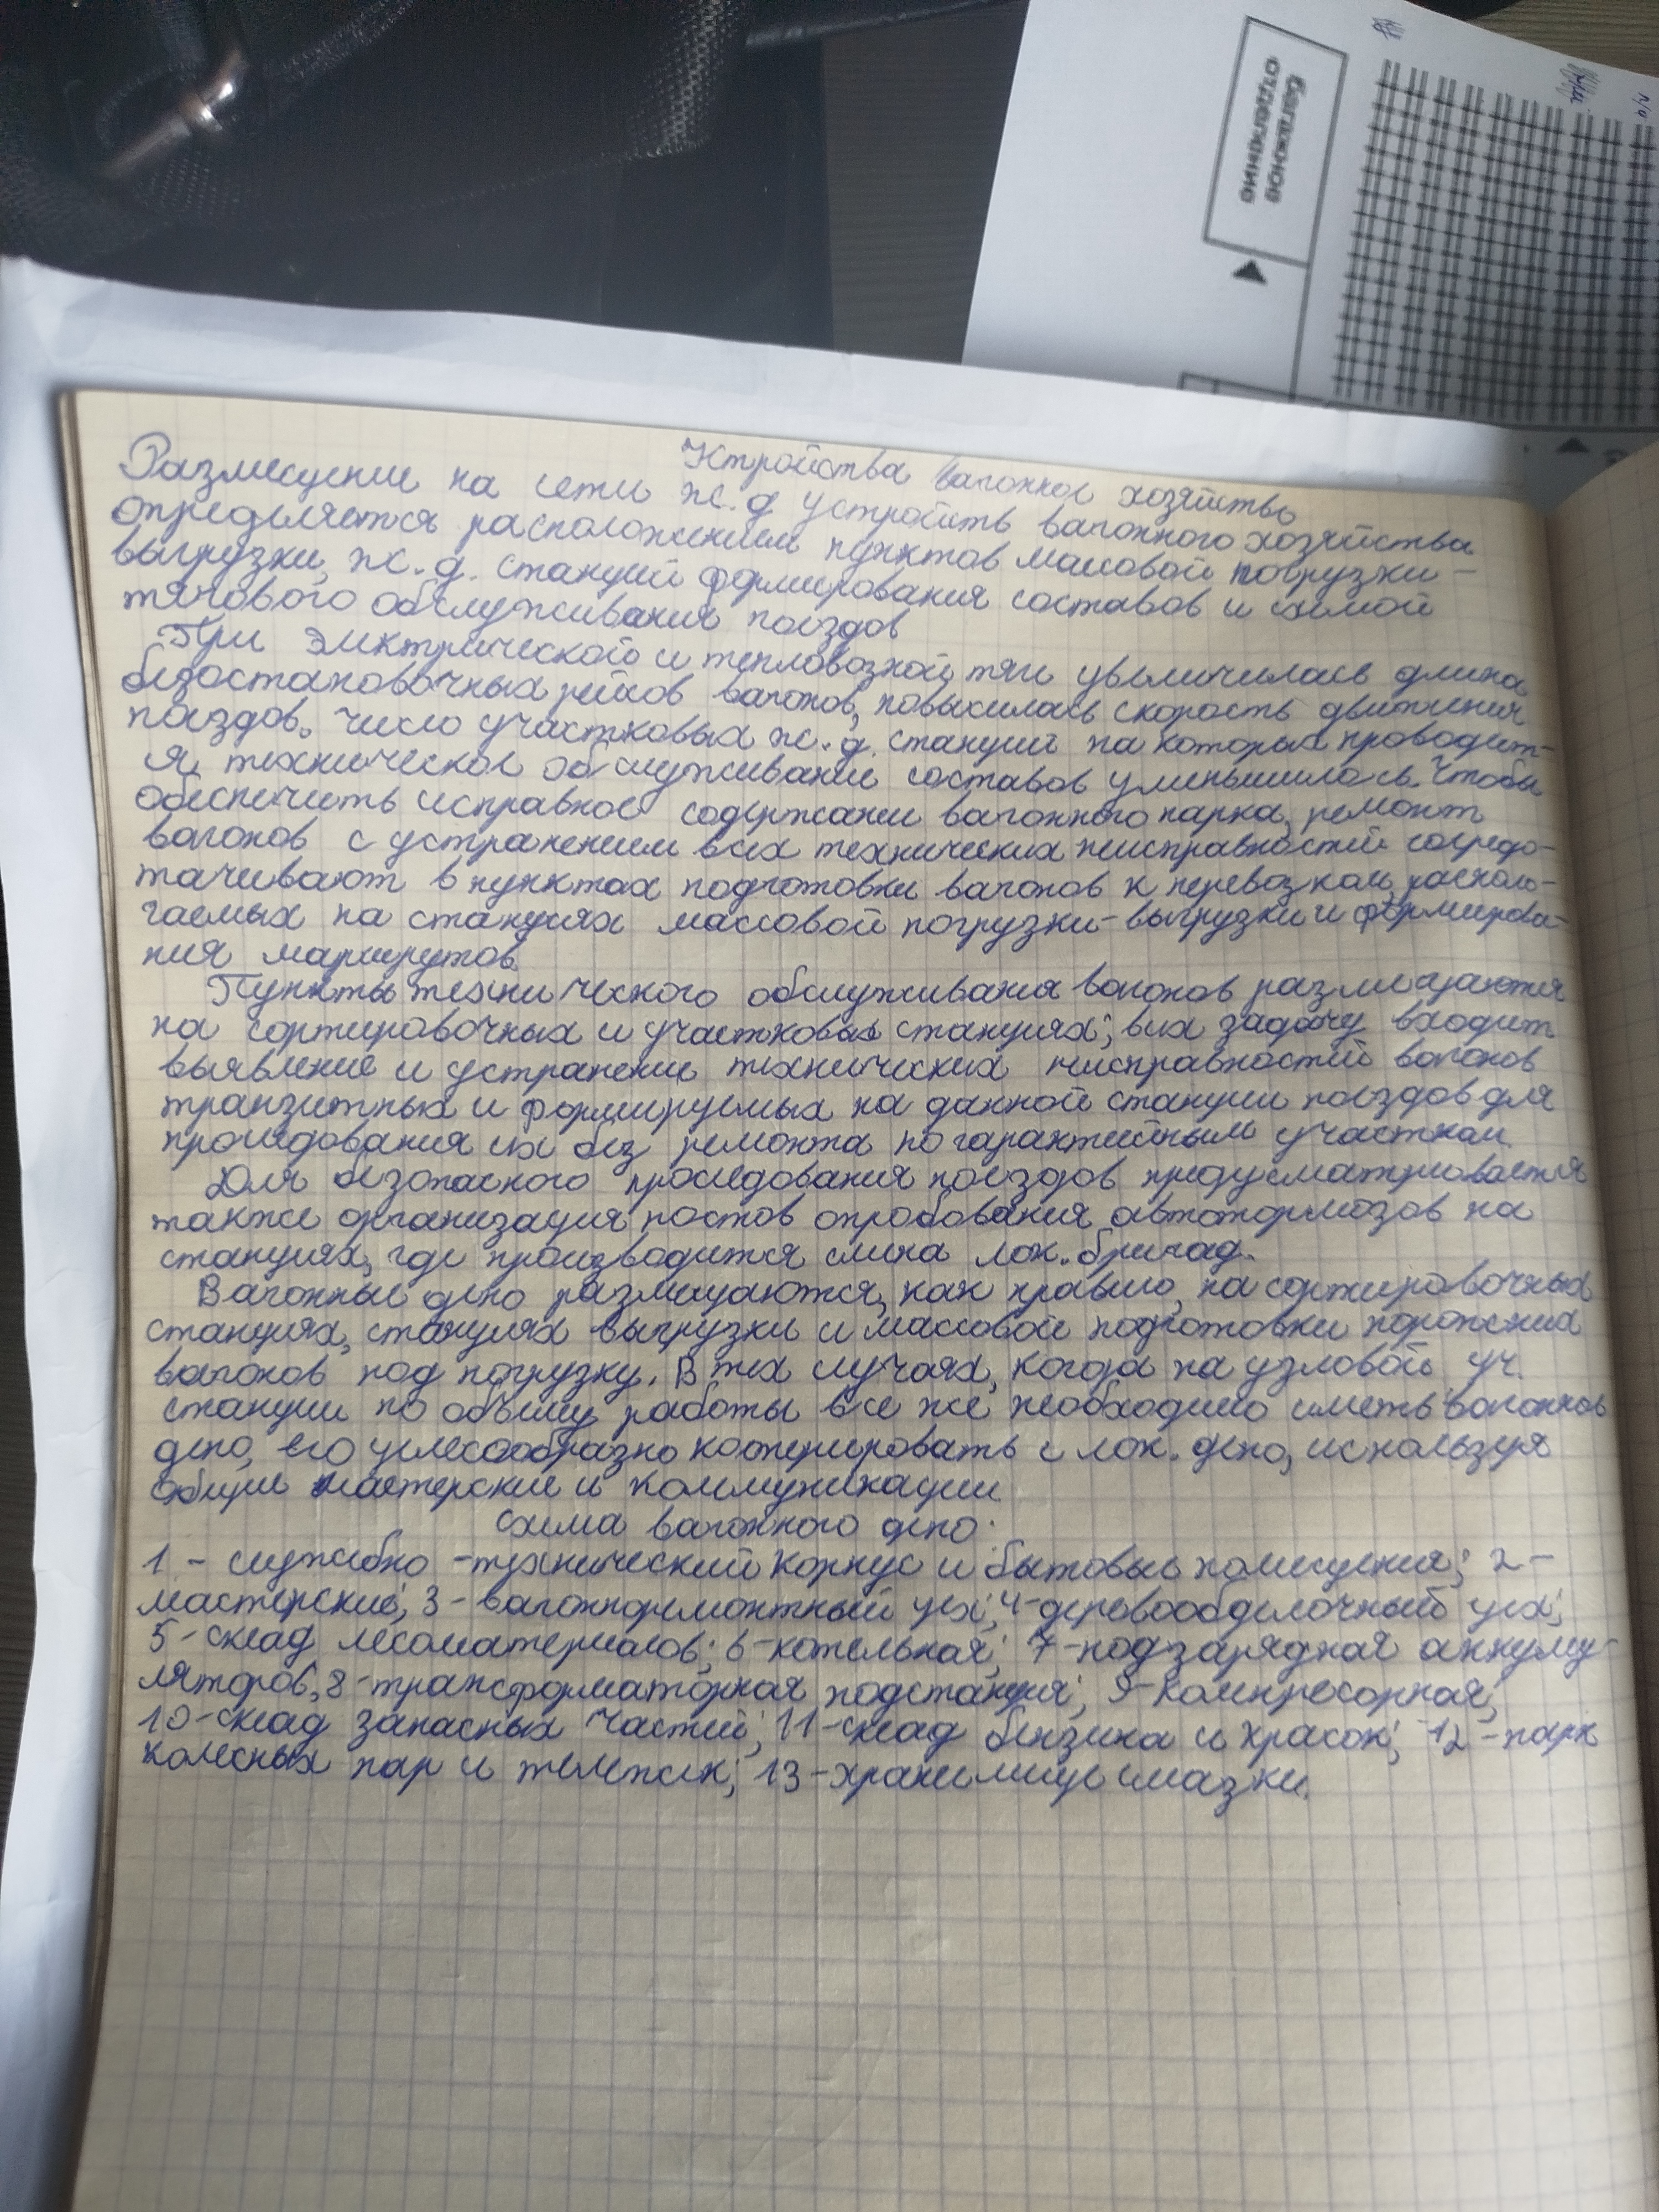 багажное
отделение
Устройства вагонное хозяйство
Размещение на сети ж.д устройств вагонного хозяйства
определяется расположением пунктов массовой погрузки-
выгрузки, ж.д. станций формирования составов и схемой
тягового обслуживания поездов
При электрической и тепловозной тяги увеличилась длина
безостановочных рейсов вагонов, повысилась скорость движения
поездов. число участковых ж.д. станций на которых проводит-
я техническое обслуживание составов уменьшилось. Чтобы
обеспечить исправное содержание вагонного парка, ремонт
вагонов с устранением всех технических неисправностей сосредо-
тачивают в пунктах подготовки вагонов к перевозкам, располо-
гаемых на станциях массовой погрузки-выгрузки и формирова-
ния маршрутов.
Пункты технического обслуживания вагонов размещаются
на сортировочных и участковых станциях; в их задачу входит
выявление и устранение технических неисправностей вагонов
транзитных и формируемых на данной станции поездов для
проследования их без ремонта по гарантийным участкам.
Для безопасного проследования поездов предусматривается
также организация постов опробования автотормозов на
станциях, где производится смена лок. бригад.
Вагонные депо размещаются, как правило, на сортировочных
станциях, станциях выгрузки и массовой подготовки порожних
вагонов под погрузку. В тех случаях, когда на узловой уч.
станции по объему работы все же необходимо иметь вагонное
депо, его целесообразно коперировать с лок. депо, используя
общие мастерские и коммуникации
Схема вагонного депо:
1 - служебно-технический корпус и бытовые помещения; 2-
мастерские; 3-вагоноремонтный цех; 4-деревообделочный цех;
5-склад лесоматериалов; 6-котельная; 7-подзарядная аккуму-
ляторов, 8-трансформаторная подстанция; 9-компресорная;
10-склад запасных частей; 11-склад бензина и красок; 12-парк
колесных пар и тележек; 13-хранилище смазки.